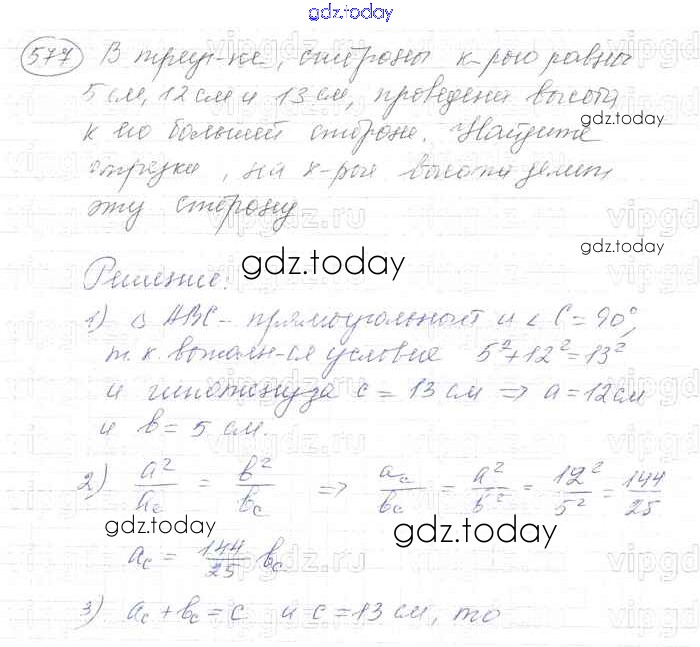 gdz.today
577 В треуг-ке, стороны к-рого равны
5 см, 12 см и 13 см, проведена высота
gdz.today
к его большей стороне. Найдите
отрезки, на к-рые высота делит
эту сторону
gdz.today
gdz.today
Решение:
1) △ ABC - прямоугольный и ∠ C = 90°,
т.к. выполн-ся условие 5² + 12² = 13²
и гипотенуза c = 13 см => a = 12 см
и b = 5 см.
2) a²/a_c = b²/b_c => a_c/b_c = a²/b² = 12²/5² = 144/25
gdz.today gdz.today
a_c = 144/25 b_c
3) a_c + b_c = c и c = 13 см, то